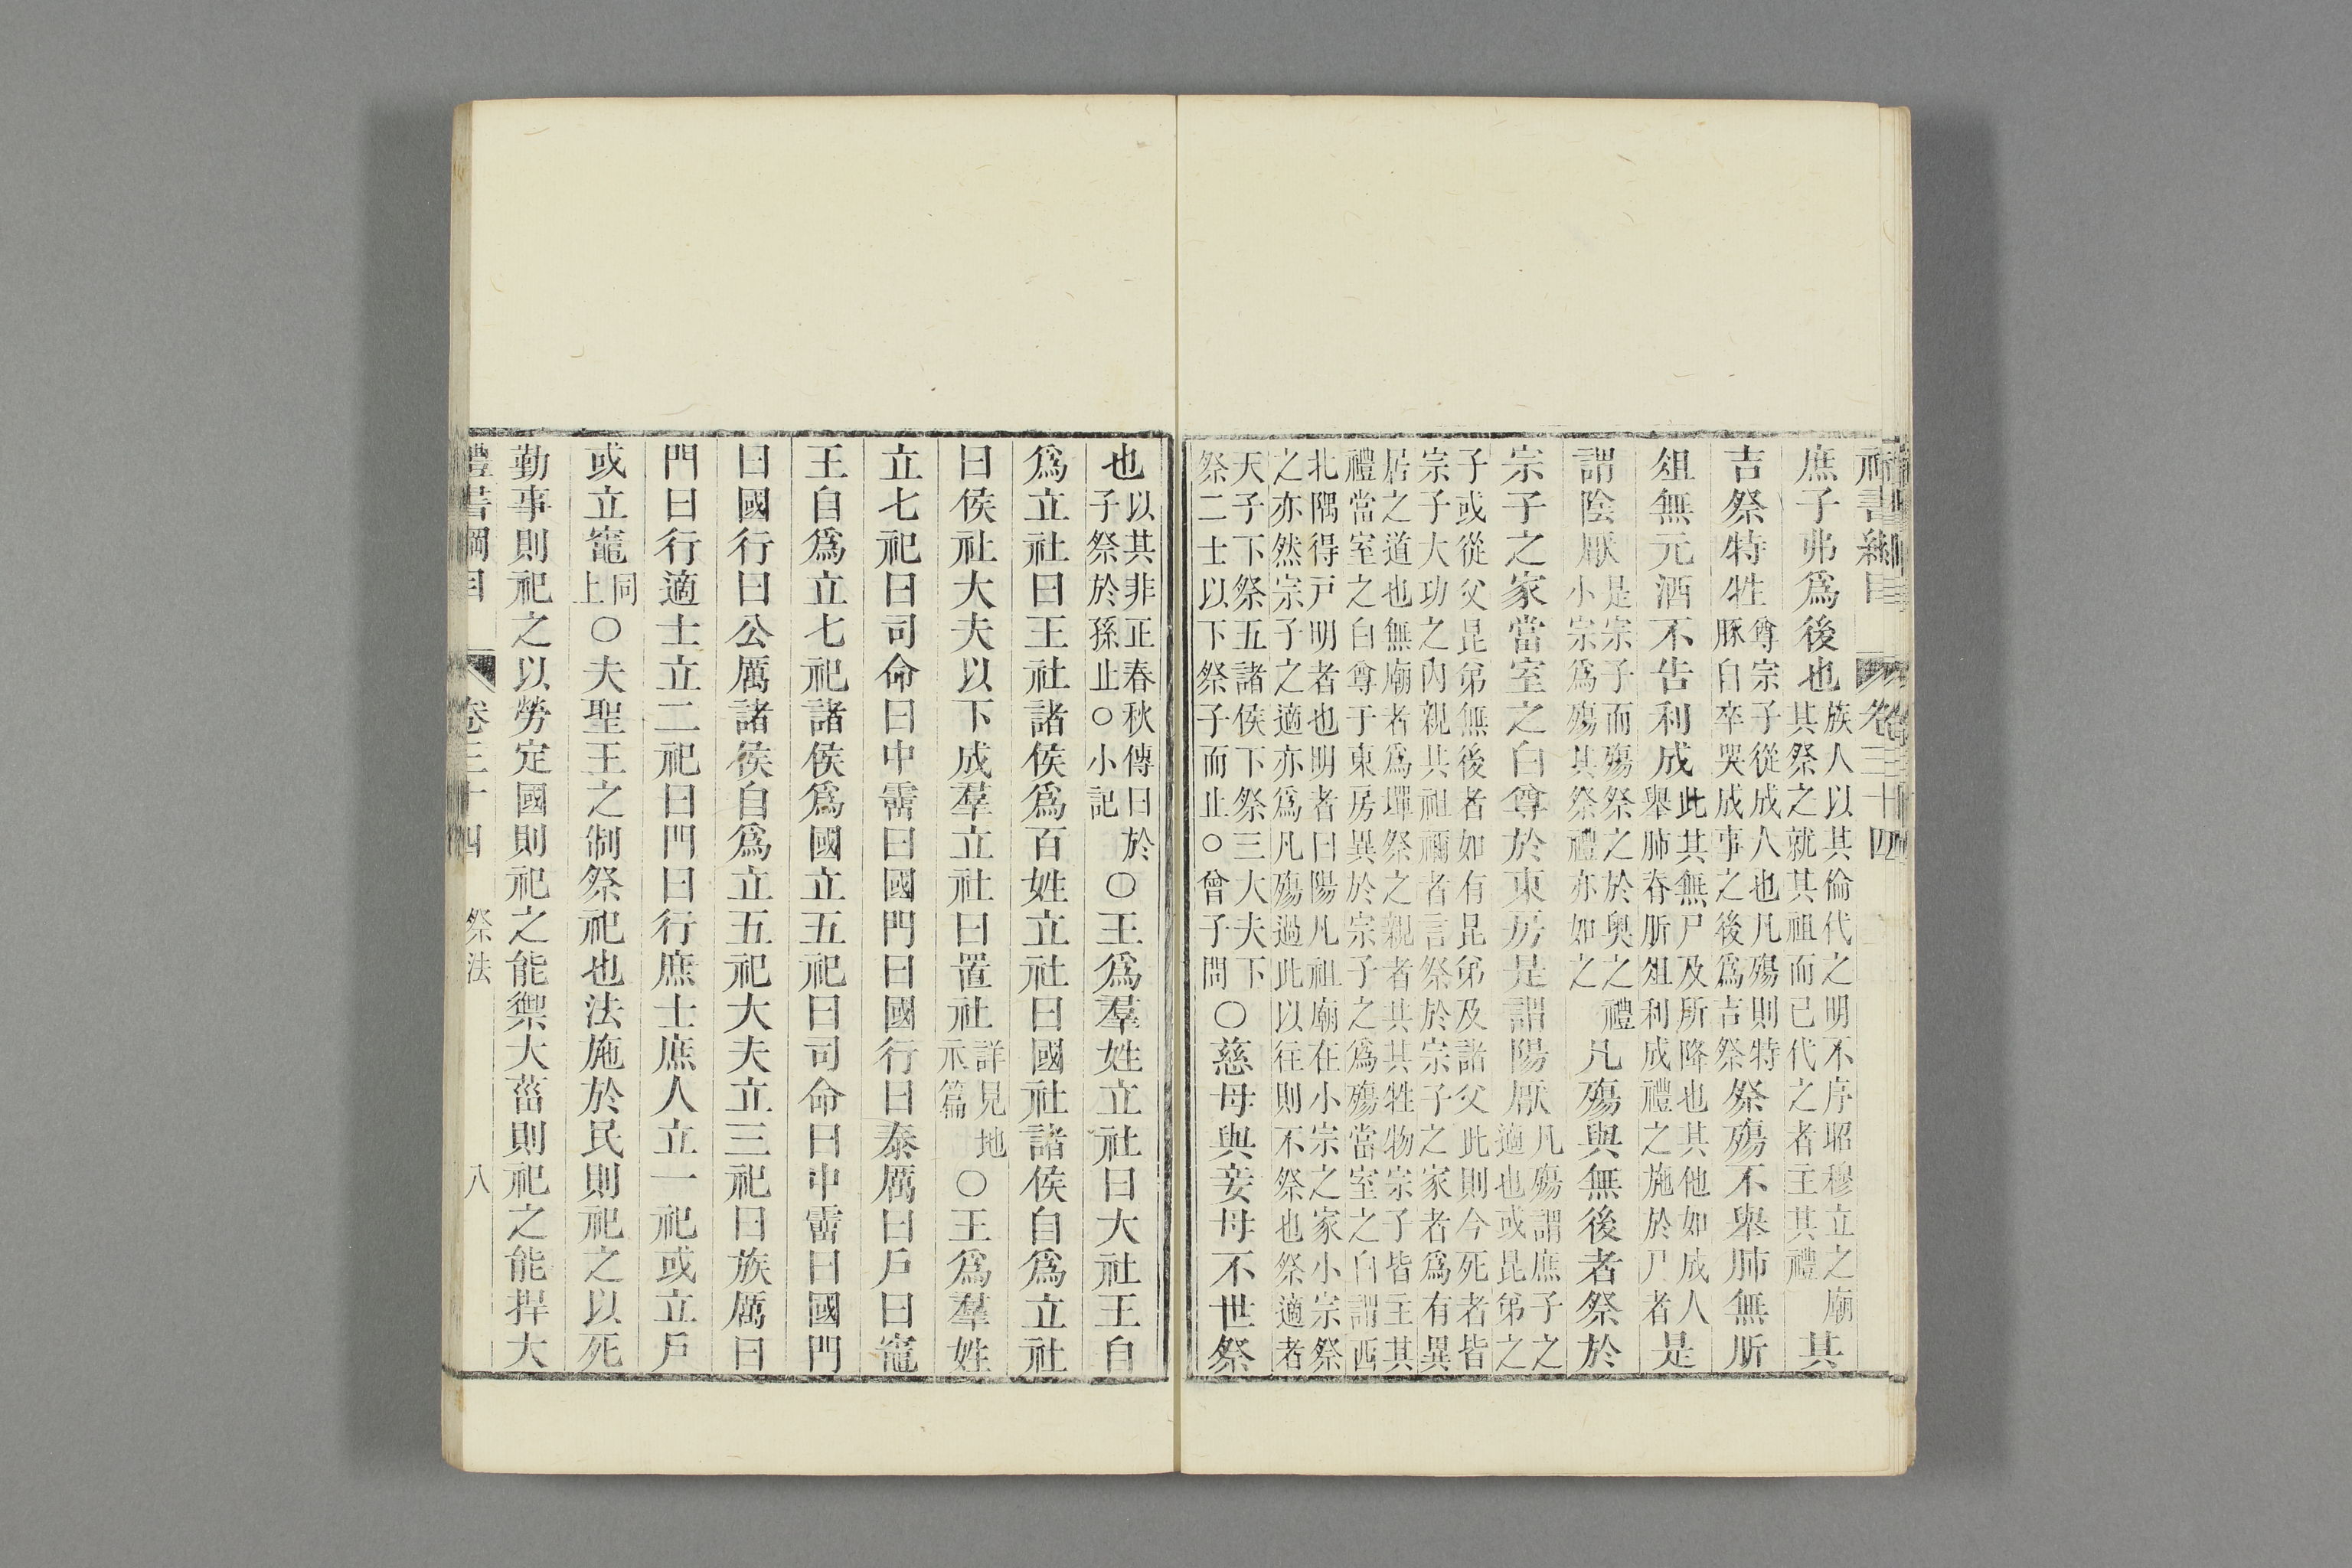 禮書綱目 卷三十四
庶子弗爲後也族人以其倫代之明不序昭穆立之廟其祭之就其祖而已代之者主其禮其
吉祭特牲尊宗子從成人也凡殤則特豚自卒哭成事之後爲吉祭祭殤不舉肺無肵
俎無元酒不告利成此其無尸及所降也其他如成人舉肺脊肵俎利成禮之施於尸者是
謂陰厭是宗子而殤祭之於奧之禮小宗爲殤其祭禮亦如之凡殤與無後者祭於
宗子之家當室之白尊於東房是謂陽厭凡殤謂庶子之適也或昆弟之
子或從父昆弟無後者如有昆弟及諸父此則今死者皆宗子大功之內親共祖禰者言祭於宗子之家者爲有異
居之道也無廟者爲墠祭之親者共其牲物宗子皆主其禮當室之白尊于東房異於宗子之爲殤當室之白謂西
北隅得戸明者也明者曰陽凡祖廟在小宗之家小宗祭之亦然宗子之適亦爲凡殤過此以往則不祭也祭適者
天子下祭五諸侯下祭三大夫下祭二士以下祭子而止○曾子問○慈母與妾母不世祭
也以其非正春秋傳曰於子祭於孫止○小記○王爲羣姓立社曰大社王自
爲立社曰王社諸侯爲百姓立社曰國社諸侯自爲立社
曰侯社大夫以下成羣立社曰置社詳見地示篇○王爲羣姓
立七祀曰司命曰中霤曰國門曰國行曰泰厲曰戸曰竈
王自爲立七祀諸侯爲國立五祀曰司命曰中霤曰國門
曰國行曰公厲諸侯自爲立五祀大夫立三祀曰族厲曰
門曰行適士立二祀曰門曰行庶士庶人立一祀或立戸
或立竈同上○夫聖王之制祭祀也法施於民則祀之以死
勤事則祀之以勞定國則祀之能禦大菑則祀之能捍大
禮書綱目 卷三十四 祭法 八